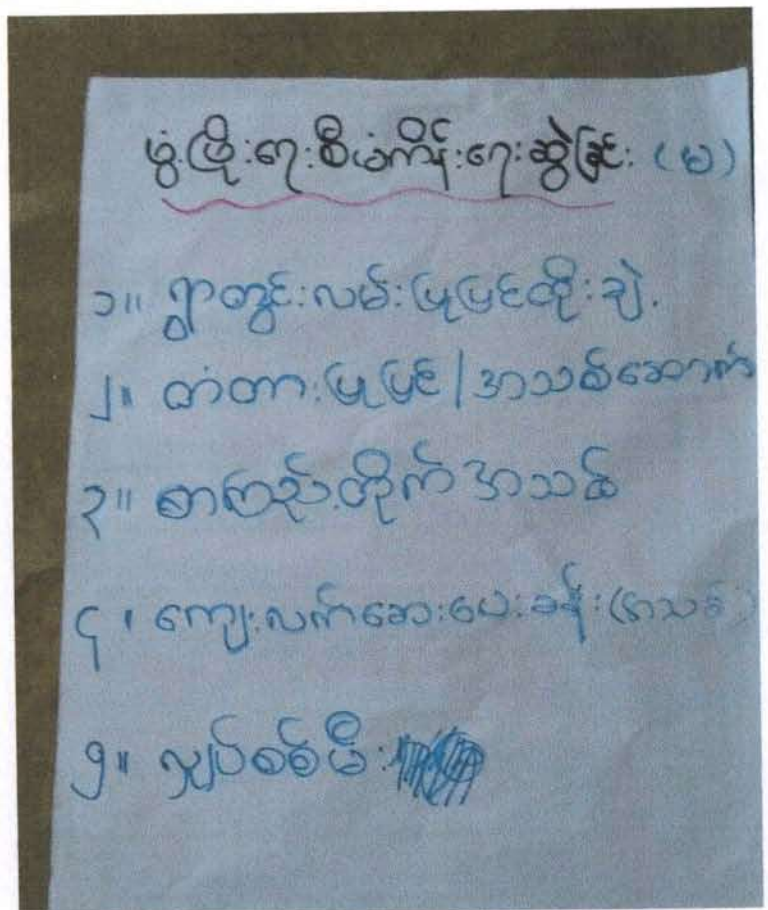 ဖွံ့ဖြိုးရေးစီမံကိန်းရေးဆွဲခြင်း (မ)
၁။ ရွာတွင်းလမ်းပြုပြင်ထိုးချဲ့
၂။ တံတားပြုပြင်/အသစ်ဆောက်
၃။ စာကြည့်တိုက်အသစ်
၄။ ကျေးလက်ဆေးပေးခန်း (အသစ်)
၅။ လျှပ်စစ်မီး